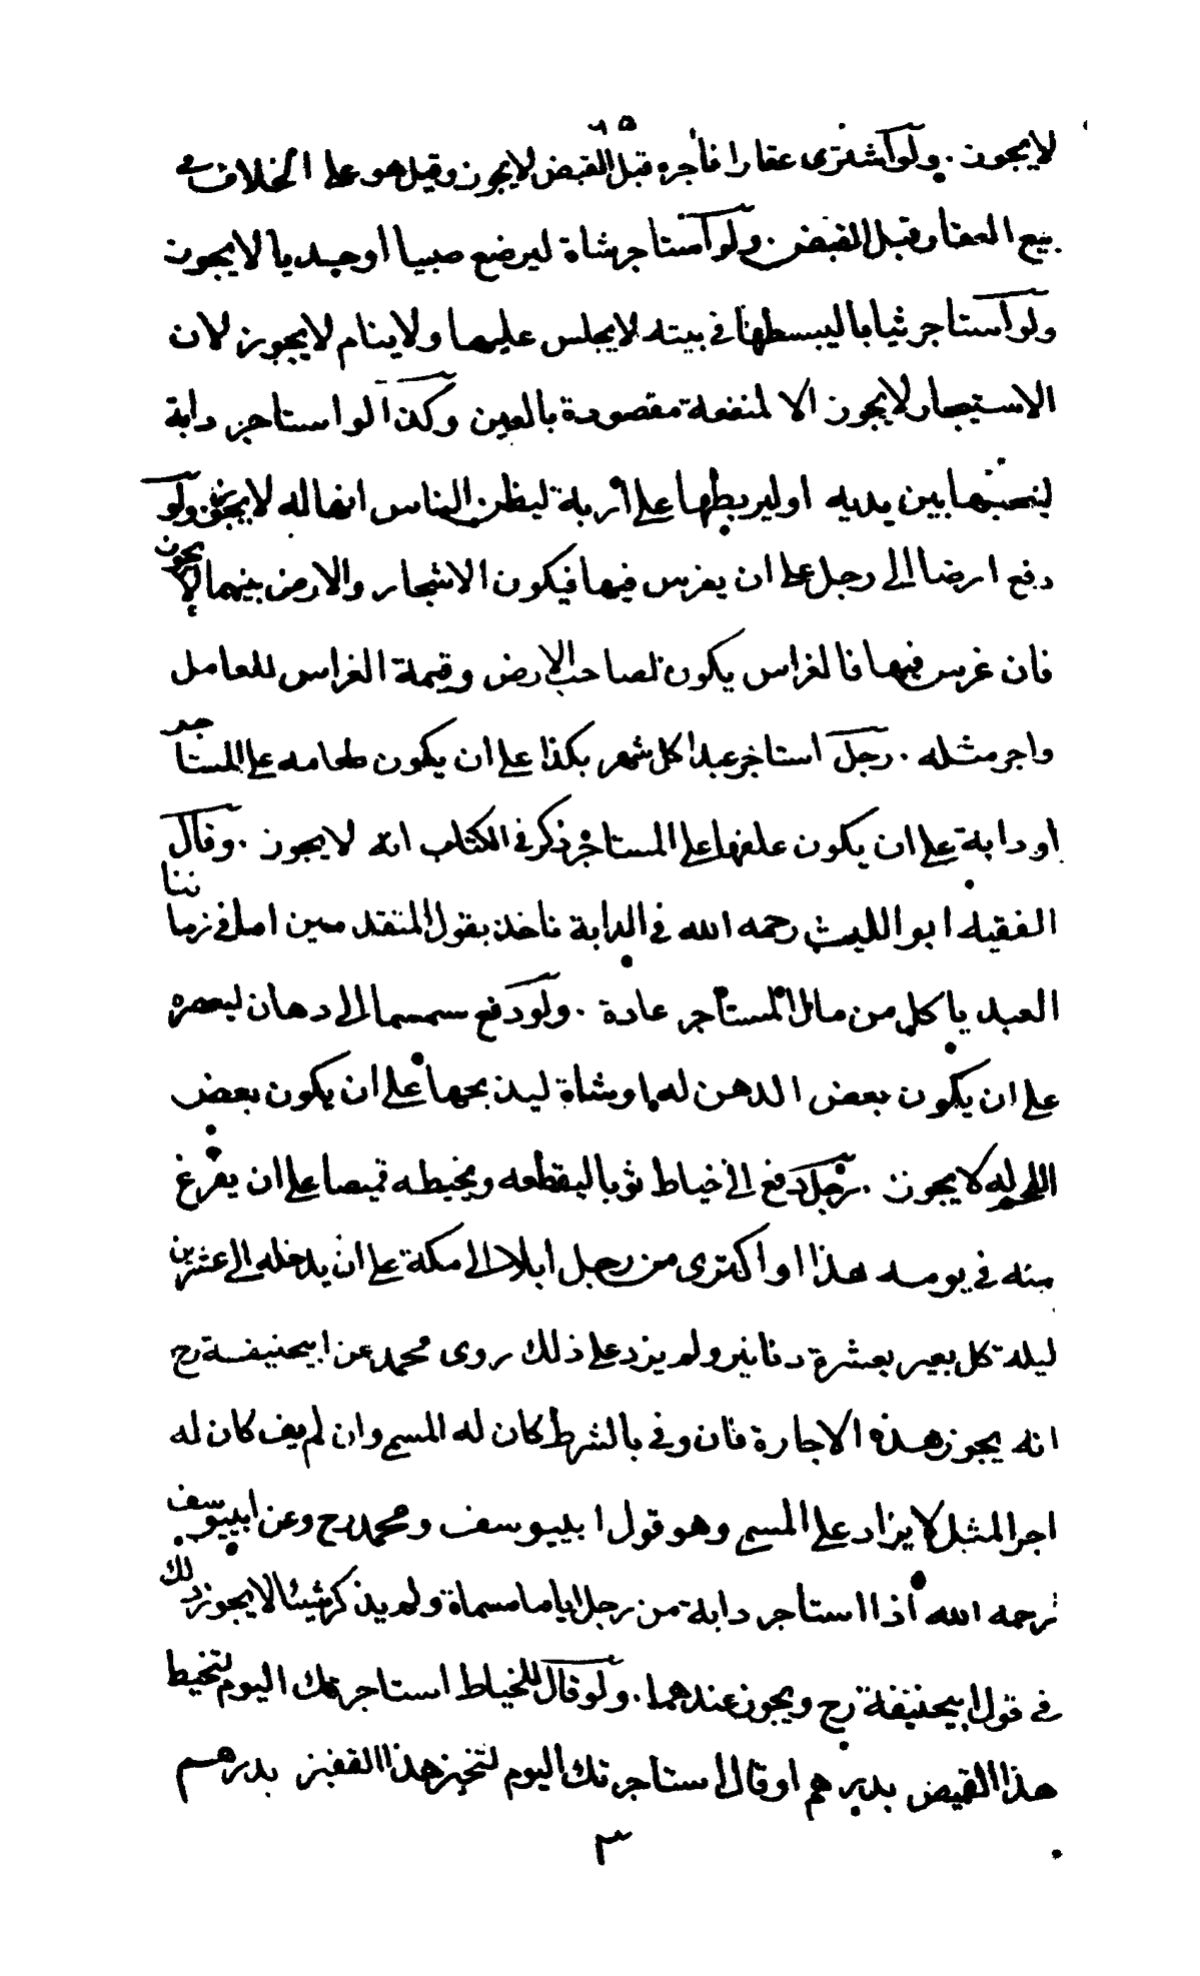 ٦٥
لا يجوز . ولو اشترى عقارا فأجره قبل القبض لا يجوز وقيل هو على الخلاف في
بيع العقار قبل القبض . ولو استاجر شاة ليرضع صبيا او جديا لا يجوز
ولو استاجر ثيابا ليبسطها في بيته لا يجلس عليها ولا ينام لا يجوز لان
الاستيجار لا يجوز الا لمنفعة مقصودة بالعين وكذا لو استاجر دابة
ليجنبها بين يديه او ليربطها على اربه ليظن الناس انها له لا يجوز ولو
دفع ارضا الى رجل على ان يغرس فيها فيكون الاشجار والارض بينهما لا يجوز
فان غرس فيها فالغراس يكون لصاحب الارض وقيمة الغراس للعامل
واجر مثله . رجل استاجر عبدا كل شهر بكذا على ان يكون طعامه على المستاجر
او دابة على ان يكون علفها على المستاجر ذكر في الكتاب انه لا يجوز . وقال
الفقيه ابو الليث رحمه الله في الدابة ناخذ بقول المتقدمين اما في زماننا
العبد ياكل من مال المستاجر عادة . ولو دفع سمسما الى دهان ليعصره
على ان يكون بعض الدهن له او شاة ليذبحها على ان يكون بعض
اللحم له لا يجوز . رجل دفع الى خياط ثوبا ليقطعه ويخيطه قميصا على ان يفرغ
منه في يومه هذا او اكترى من رجل ابلا الى مكة على ان يدخله الى عشرين
ليلة كل بعير بعشرة دنانير ولم يزد على ذلك روى محمد عن ابيحنيفة رح
انه يجوز هذه الاجارة فان وفى بالشرط كان له المسمى وان لم يف كان له
اجر المثل لا يزاد على المسمى وهو قول ابييوسف ومحمد رح وعن ابييوسف
رحمه الله اذا استاجر دابة من رجل اياما مسماة ولم يذكر شيئا لا يجوز ذلك
في قول ابيحنيفة رح ويجوز عندهما . ولو قال للخياط استاجرتك اليوم لتخيط
هذا القميص بدرهم او قال استاجرتك اليوم لتخبز هذا القفيز بدرهم
٣